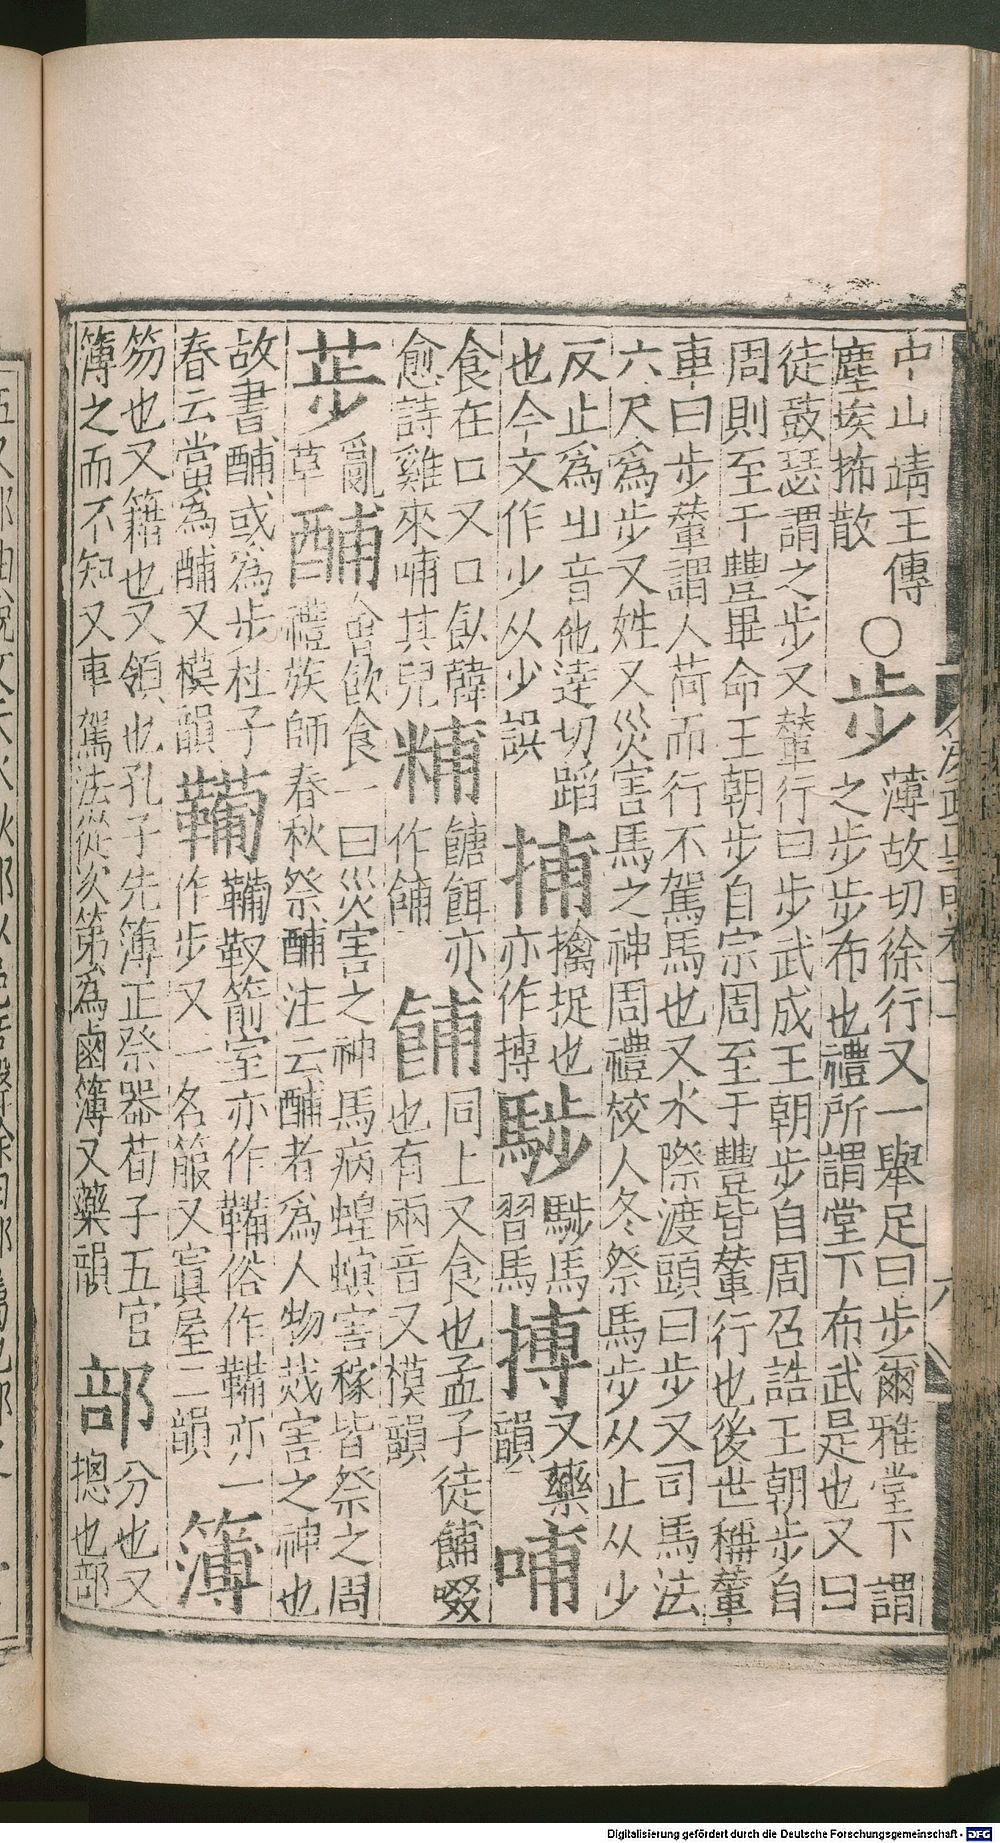 中山靖王傳
塵埃㧊散
○步
薄故切徐行又一舉足曰步爾雅堂下謂
之步步布也禮所謂堂下布武是也又曰
徒鼓瑟謂之步又輦行曰步武成王朝步自周召誥王朝步自
周則至于豐畢命王朝步自宗周至于豐皆輦行也後世稱輦
車曰步輦謂人荷而行不駕馬也又水際渡頭曰步又司馬法
六尺爲步又姓又災害馬之神周禮校人冬祭馬步从止从少
反止爲少音他達切蹈
也今文作少从少誤
捕
擒捉也
亦作搏
䮛
䮛馬
習馬
搏
又藥
韻
哺
食在口又口飤韓
愈詩雞來哺其兒
䊇
餹餌亦
作餔
餔
同上又食也孟子徒餔啜
也有兩音又模韻
荹
亂
草
酺
會飲食一曰災害之神馬病蝗螟害稼皆祭之周
禮族師春秋祭酺注云酺者爲人物烖害之神也
故書酺或爲步杜子
春云當爲酺又模韻
鞴
鞴靫箭室亦作鞴俗作鞴亦一
作步又一名箙又寘屋二韻
簿
笏也又籍也又領也孔子先簿正祭器荀子五官
簿之而不知又車駕法從次第爲鹵簿又藥韻
部
分也又
揔也部
Digitalisierung gefördert durch die Deutsche Forschungsgemeinschaft - DFG